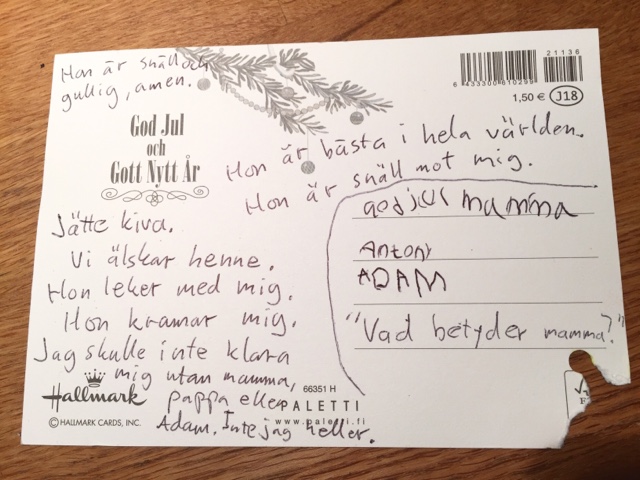 Hon är snäll och
gullig, amen.
God Jul
och
Gott Nytt År
21136
6 433300 610299
1,50 € J18
Hon är bästa i hela världen.
Hon är snäll mot mig.
Jätte kiva.
Vi älskar henne.
Hon leker med mig.
Hon kramar mig.
Jag skulle inte klara
mig utan mamma,
pappa eller
Adam. Inte jag heller.
god jul mamma
Antony
ADAM
"Vad betyder mamma?"
Hallmark
© HALLMARK CARDS, INC.
66351 H
PALETTI
www.paletti.fi